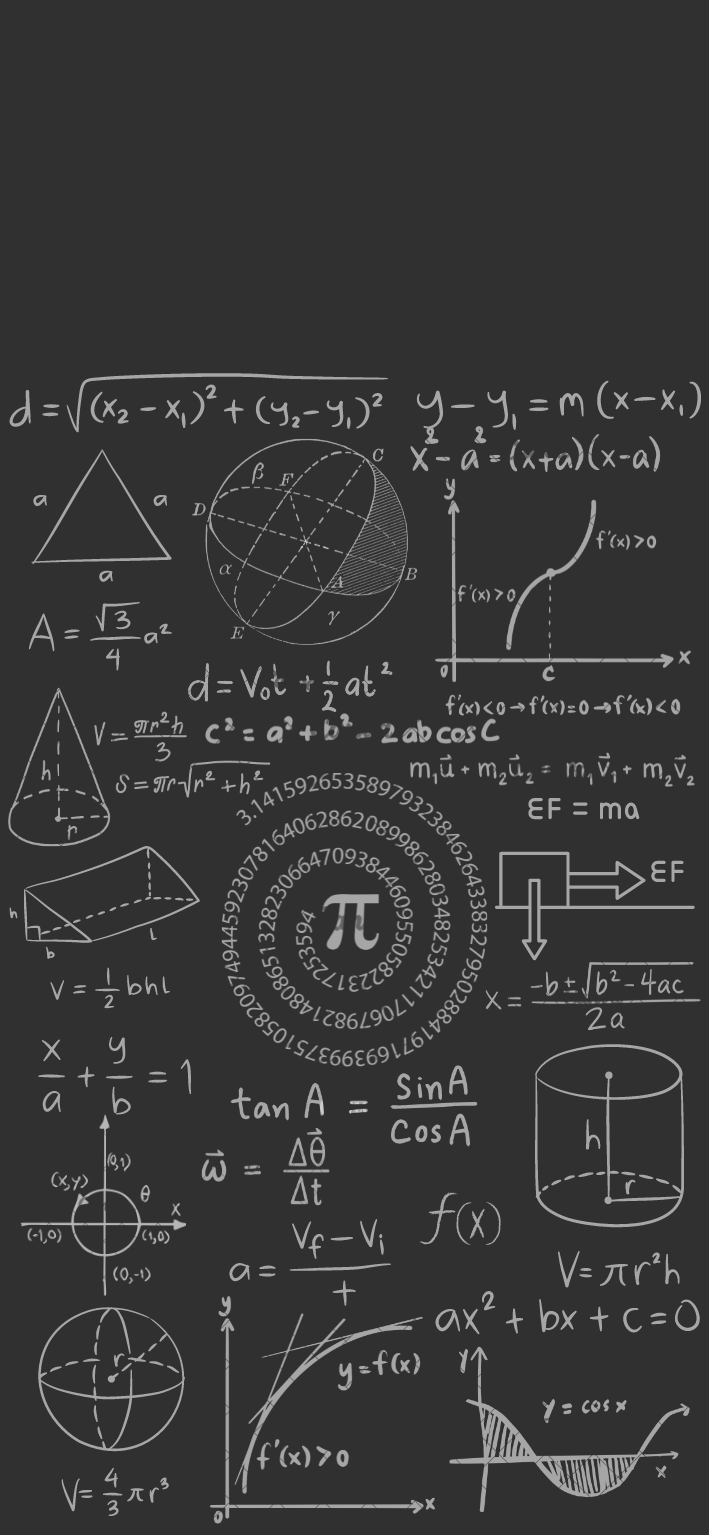 d = √(x₂ − x₁)² + (y₂ − y₁)²
y − y₁ = m (x − x₁)
x² − a² = (x+a)(x−a)
a a
a
β F C
D
α A B
γ
E
y
f'(x)>0
f'(x)>0
0 c x
A = √3/4 a²
d = V₀t + 1/2 at²
f'(x)<0 → f'(x)=0 → f'(x)<0
V = πr²h/3
c² = a² + b² − 2ab cos C
h
r
S = πr√r² + h²
m₁u⃗ + m₂u⃗₂ = m₁v⃗₁ + m₂v⃗₂
ΣF = ma
3.1415926535897932384626433832795028841971693993751058209749445923078164062862089986280348253421170679821480865132823066470938446095505822317253594
π
ΣF
h
b l
V = 1/2 bhl
x = −b ± √b² − 4ac / 2a
x/a + y/b = 1
tan A = Sin A / Cos A
h
r
(0,1)
(x,y) θ
x
(-1,0) (1,0)
(0,-1)
ω⃗ = Δθ⃗/Δt
f(x)
a = Vf − Vi / t
V = πr²h
ax² + bx + c = 0
r
V = 4/3 πr³
y
y=f(x)
f'(x)>0
0 x
y
y = cos x
x